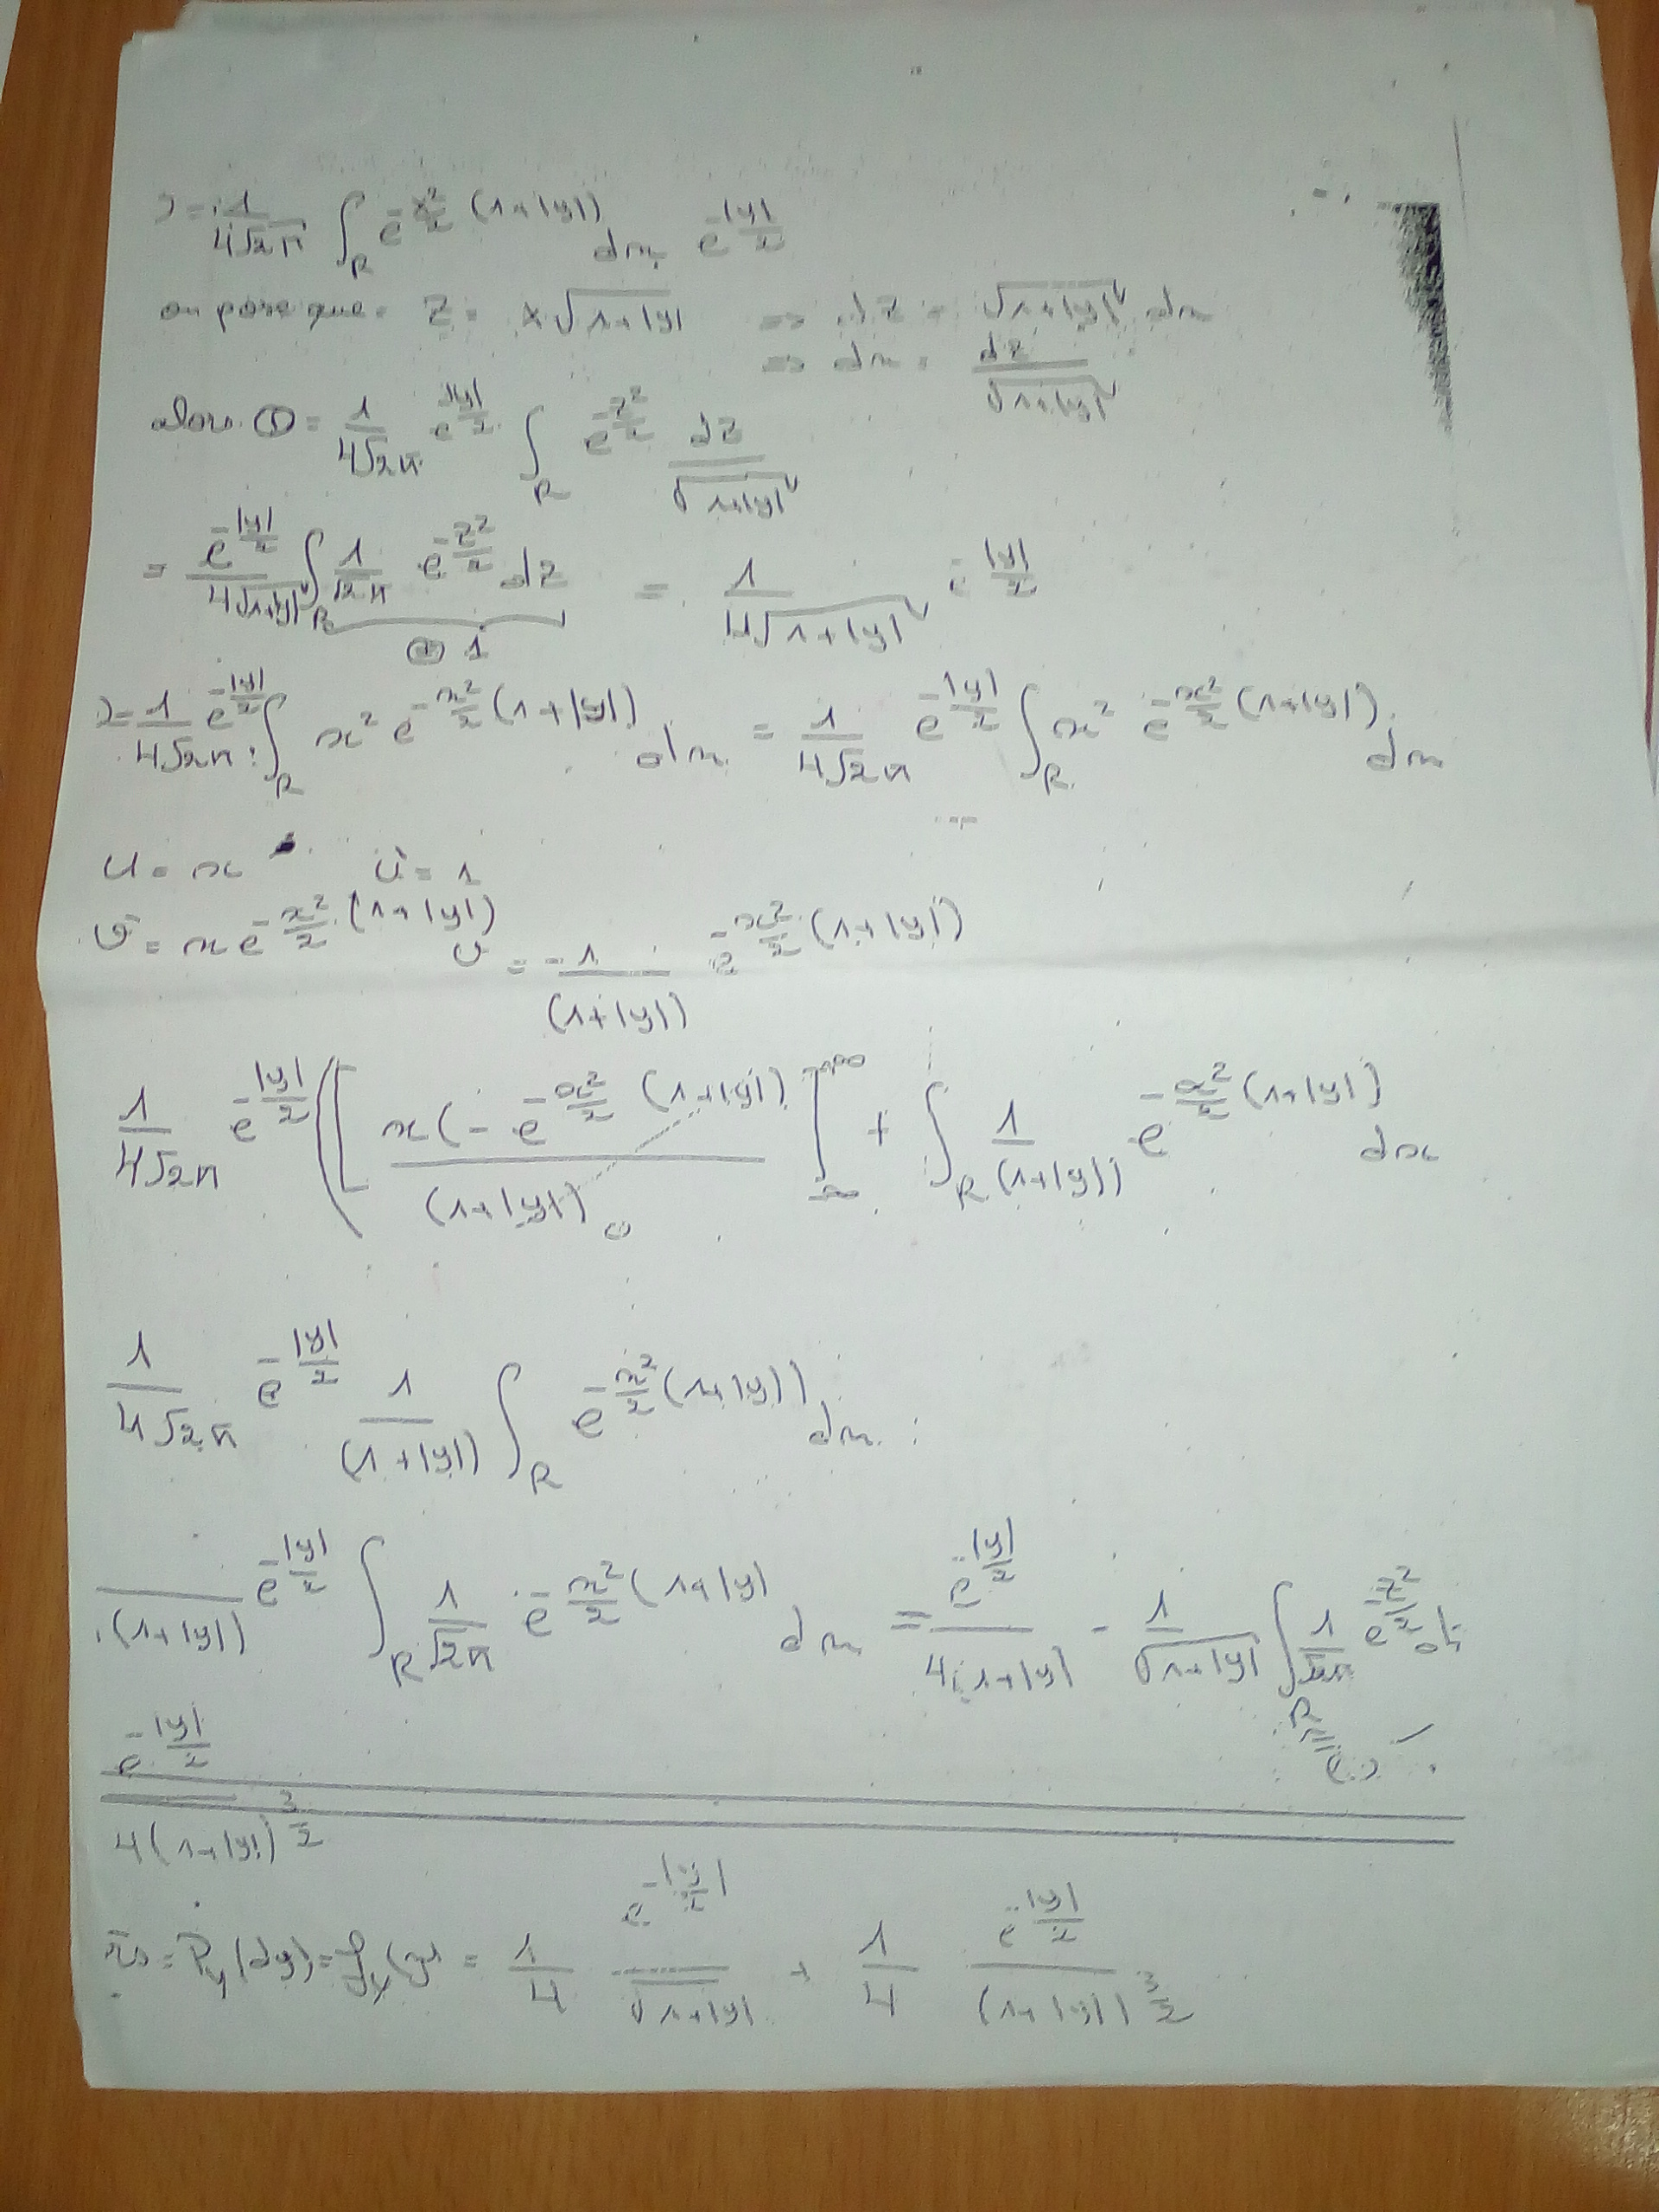 ) = 1/(4√2π) ∫_R e^(-x²/2 (1+|y|)) dx e^(-|y|/2)
on pose que Z = x√(1+|y|) => dZ = √(1+|y|) dx
=> dx = dZ/√(1+|y|)
alors ① = 1/(4√2π) e^(-|y|/2) ∫_R e^(-Z²/2) dZ/√(1+|y|)
= e^(-|y|/2)/(4√(1+|y|)) ∫_R 1/√2π e^(-Z²/2) dZ = 1/(4√(1+|y|)) e^(-|y|/2)
1
) = 1/(4√2π) e^(-|y|/2) ∫_R x² e^(-x²/2 (1+|y|)) dx = 1/(4√2π) e^(-|y|/2) ∫_R x² e^(-x²/2 (1+|y|)) dx
U = x U' = 1
V' = x e^(-x²/2 (1+|y|)) V = -1/(1+|y|) e^(-x²/2 (1+|y|))
1/(4√2π) e^(-|y|/2) ([x(-e^(-x²/2 (1+|y|))/(1+|y|)]_-∞^+∞ + ∫_R 1/(1+|y|) e^(-x²/2 (1+|y|)) dx
0
1/(4√2π) e^(-|y|/2) 1/(1+|y|) ∫_R e^(-x²/2 (1+|y|)) dx
/(1+|y|) e^(-|y|/2) ∫_R 1/√2π e^(-x²/2 (1+|y|) dx = e^(-|y|/2)/(4(1+|y|) · 1/√(1+|y|) ∫_R 1/√2π e^(-Z²/2) d
e^(-|y|/2)/(4(1+|y|)^(3/2))
= P_y(dy) = f_y(y) = 1/4 e^(-|y|/2)/√(1+|y|) + 1/4 e^(-|y|/2)/(1+|y|)^(3/2)